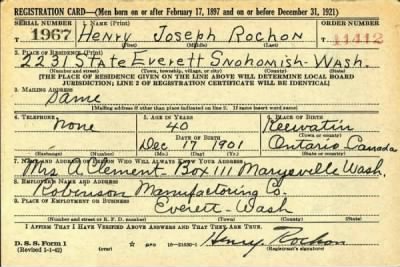 REGISTRATION CARD—(Men born on or after February 17, 1897 and on or before December 31, 1921)
SERIAL NUMBER 1. NAME (Print) ORDER NUMBER
T 1967 Henry Joseph Rochon 11412
(First) (Middle) (Last)
2. PLACE OF RESIDENCE (Print)
2231 State Everett Snohomish-Wash.
(Number and street) (Town, township, village, or city) (County) (State)
[THE PLACE OF RESIDENCE GIVEN ON THE LINE ABOVE WILL DETERMINE LOCAL BOARD
JURISDICTION; LINE 2 OF REGISTRATION CERTIFICATE WILL BE IDENTICAL]
3. MAILING ADDRESS
Same
[Mailing address if other than place indicated on line 2. If same insert word same]
4. TELEPHONE 5. AGE IN YEARS 6. PLACE OF BIRTH
None 40 Keewatin
DATE OF BIRTH
Dec 17 1901 Ontario Canada
7. NAME AND ADDRESS OF PERSON WHO WILL ALWAYS KNOW YOUR ADDRESS
Mrs A Clement-Box 111 Marysville Wash.
8. EMPLOYER'S NAME AND ADDRESS
Robinson Manufacturing Co.
9. PLACE OF EMPLOYMENT OR BUSINESS
Everett-Wash
(Number and street or R. F. D. number) (Town) (County) (State)
I AFFIRM THAT I HAVE VERIFIED ABOVE ANSWERS AND THAT THEY ARE TRUE.
D. S. S. Form 1
(Revised 1-1-42)
Henry Rochon
(Registrant's signature)